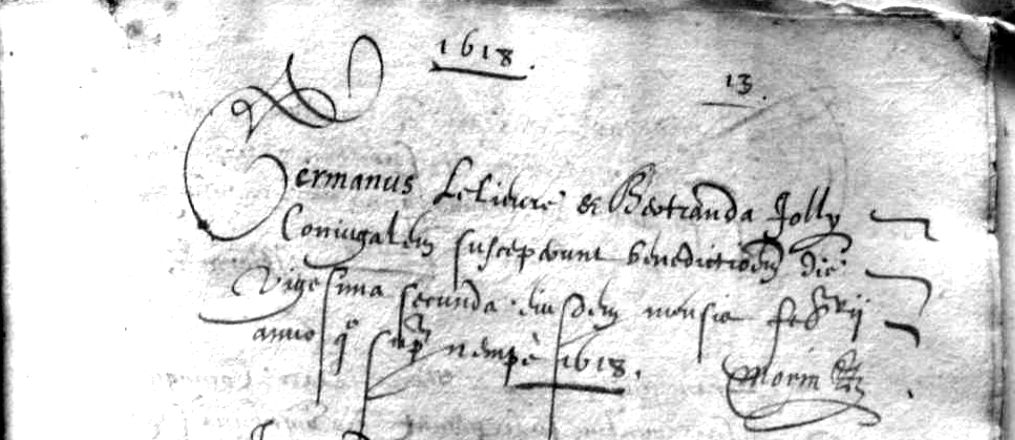 1618.
13.
Germanus Lelieure & Bertranda Jolly
Coniugalem susceperunt benedictionem die
Vigesima secunda eiusdem mensis febrrij
anno qo supra nempè 1618.
Morin